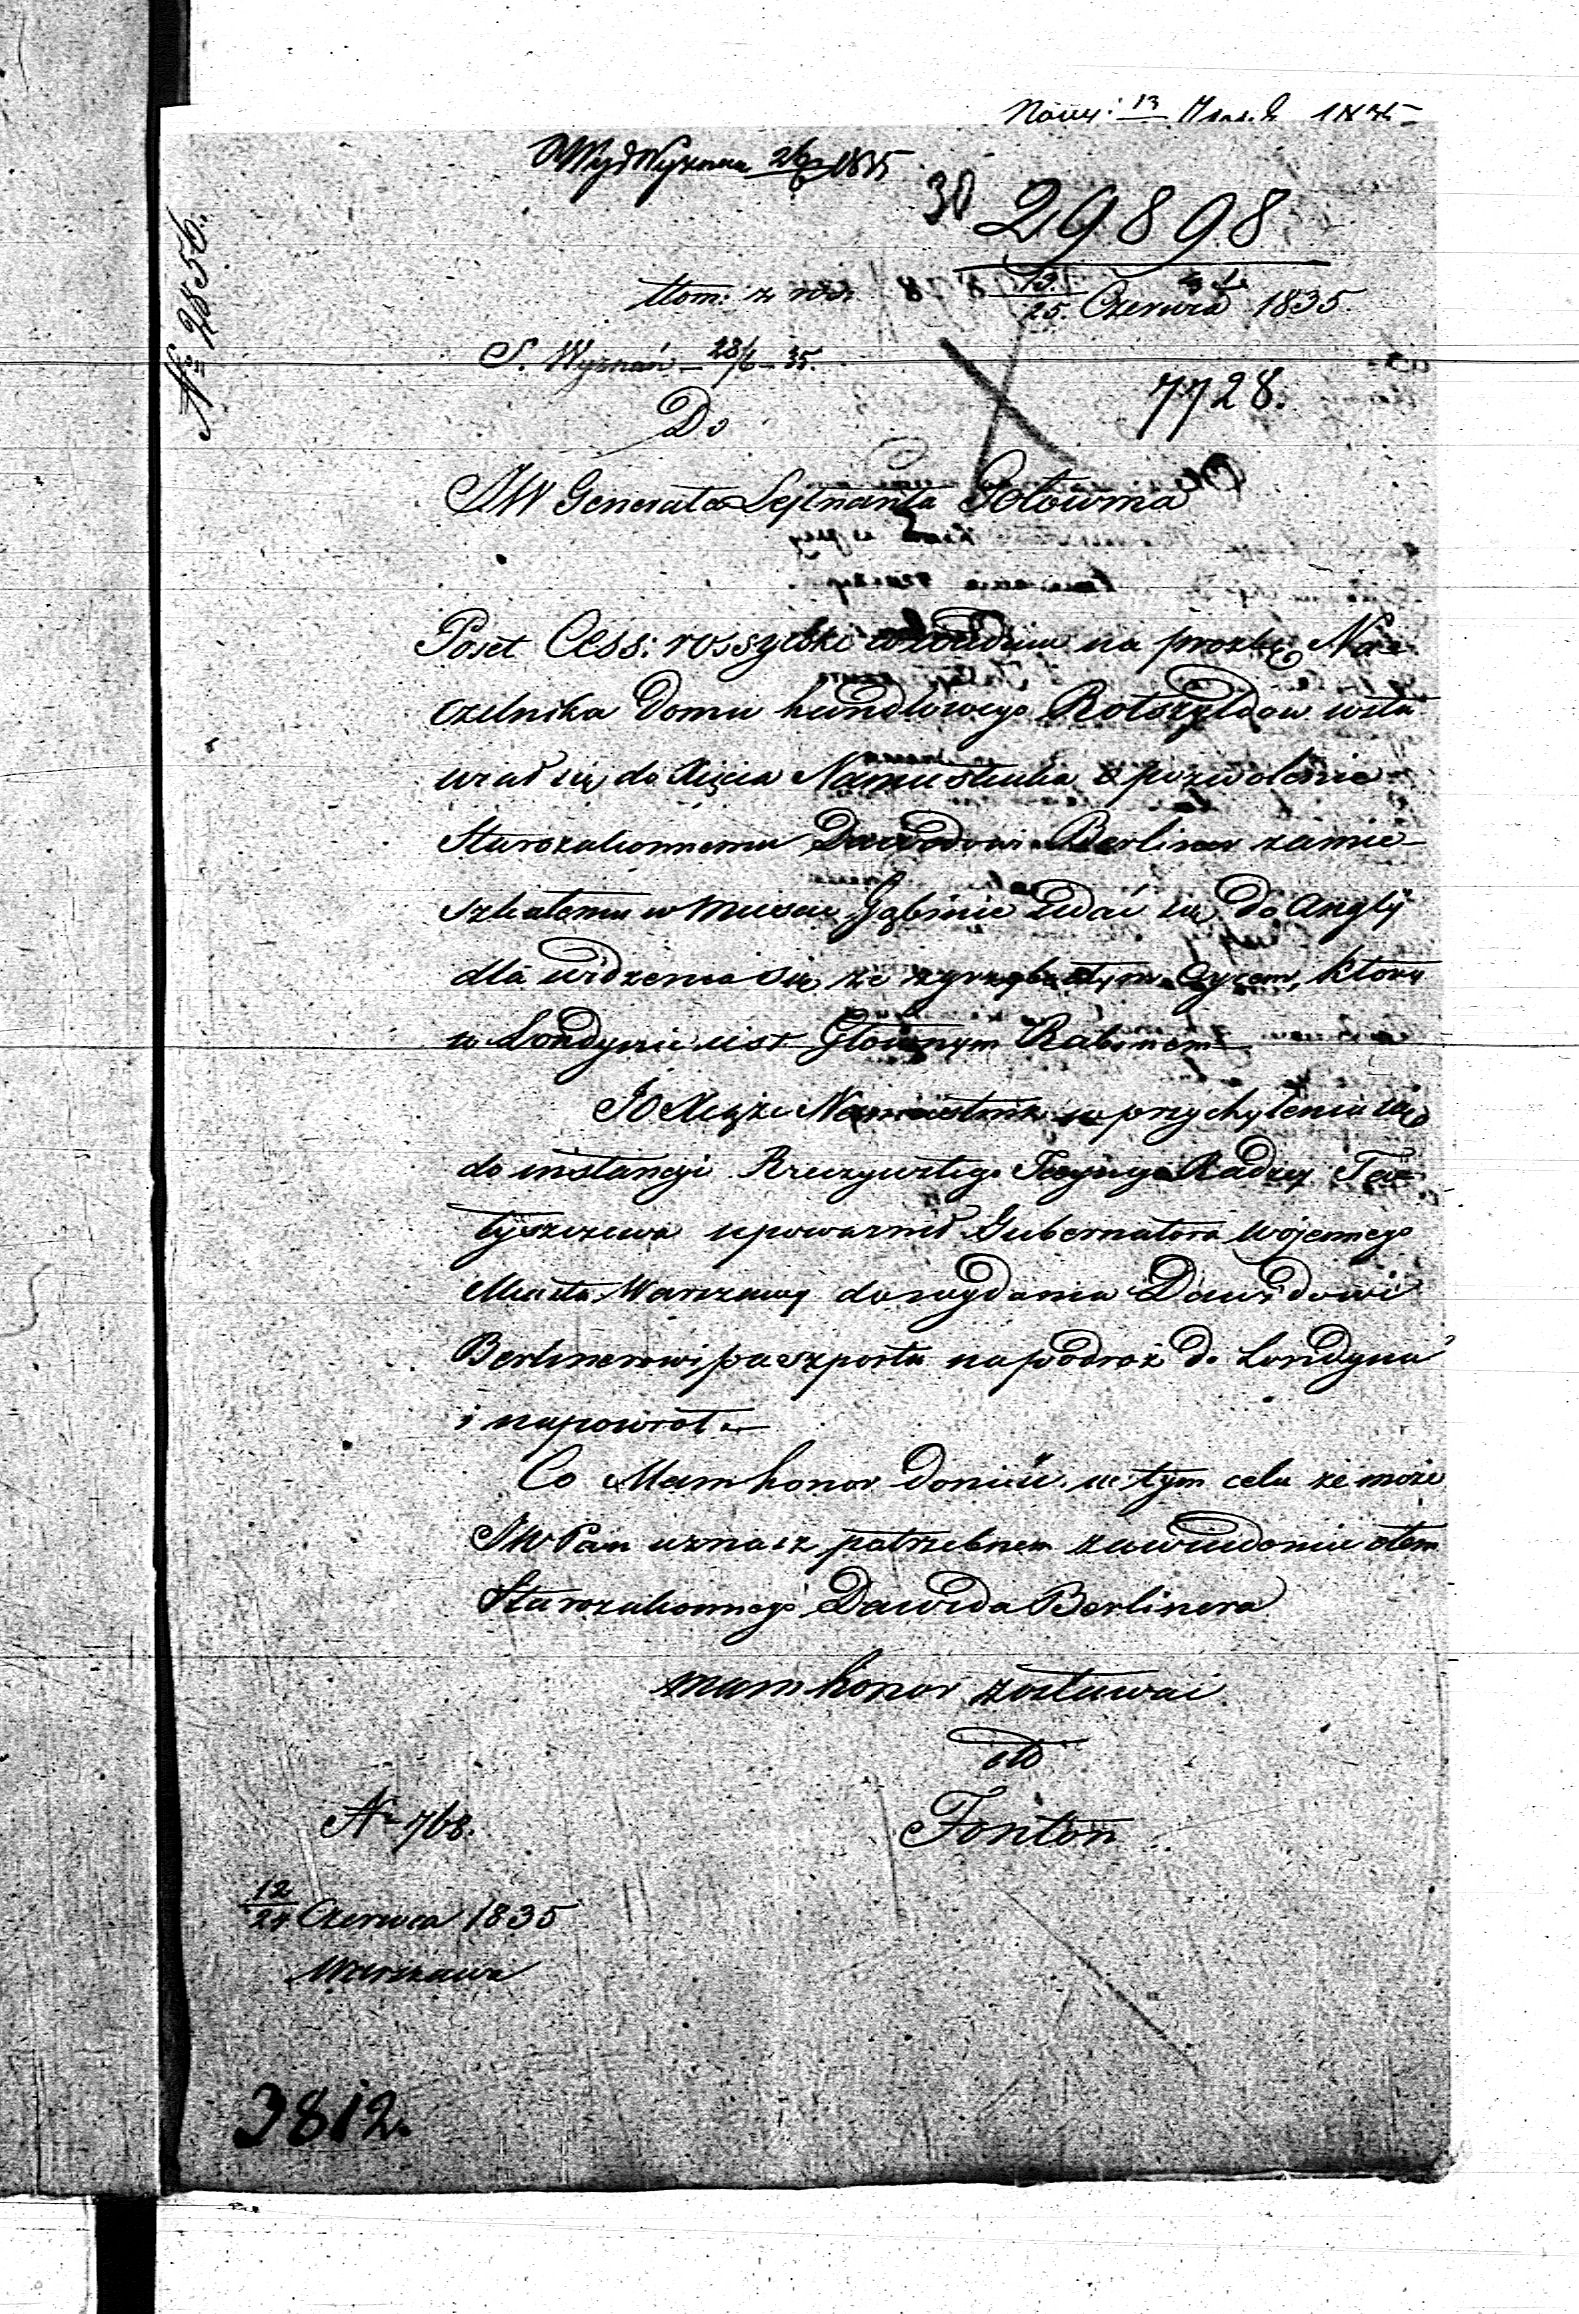 29898
13/25. Czerwca 1835.
tłom: z ros:
S. Wyznań – 28/6 – 35.
7728.
Do
JW Generała Lejtnanta Gołowina
Poseł Cess: rossyiski w Londynie na prożbę Na-
czelnika Domu handlowego Rotszyldow wsta
wiał się do Xięcia Namiestnika o pozwolenie
Starozakonnemu Dawidowi Berliner zamie-
szkałemu w Mieście Gąbinie udać się do Anglij
dla widzenia się ze zgrzybiałym Oycem, ktory
w Londynie iest Głownym Rabinem
JO Xiąże Namiestnik w przychyleniu się
do instancyi Rzeczywistego Taynego Radzcy Ta-
tyszczewa upoważnił Gubernatora Wojennego
Miasta Warszawy do wydania Dawidowi
Berlinerowi paszportu na podroż do Londynu
i napowrot
Co Mam honor donieść w tym celu że może
JW Pan uznasz potrzebnem zawiadomić o tem
Starozakonnego Dawida Berlinera
mam honor zostawać
Fonton
No 768.
12/24 Czerwca 1835
Warszawa
3812.